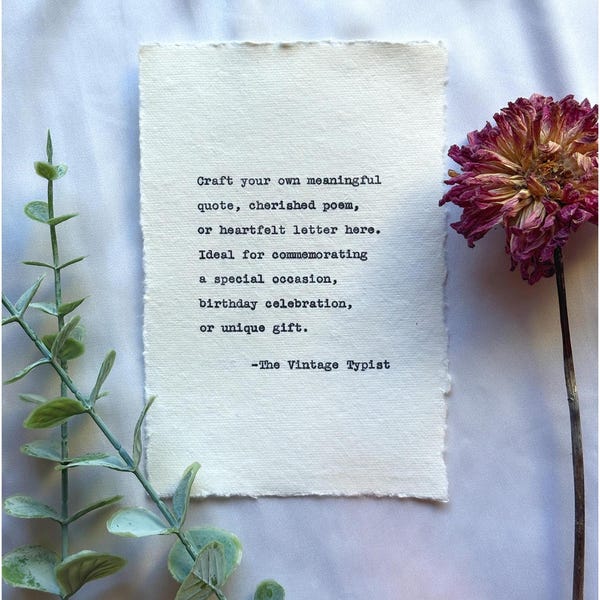 Craft your own meaningful
quote, cherished poem,
or heartfelt letter here.
Ideal for commemorating
a special occasion,
birthday celebration,
or unique gift.
-The Vintage Typist